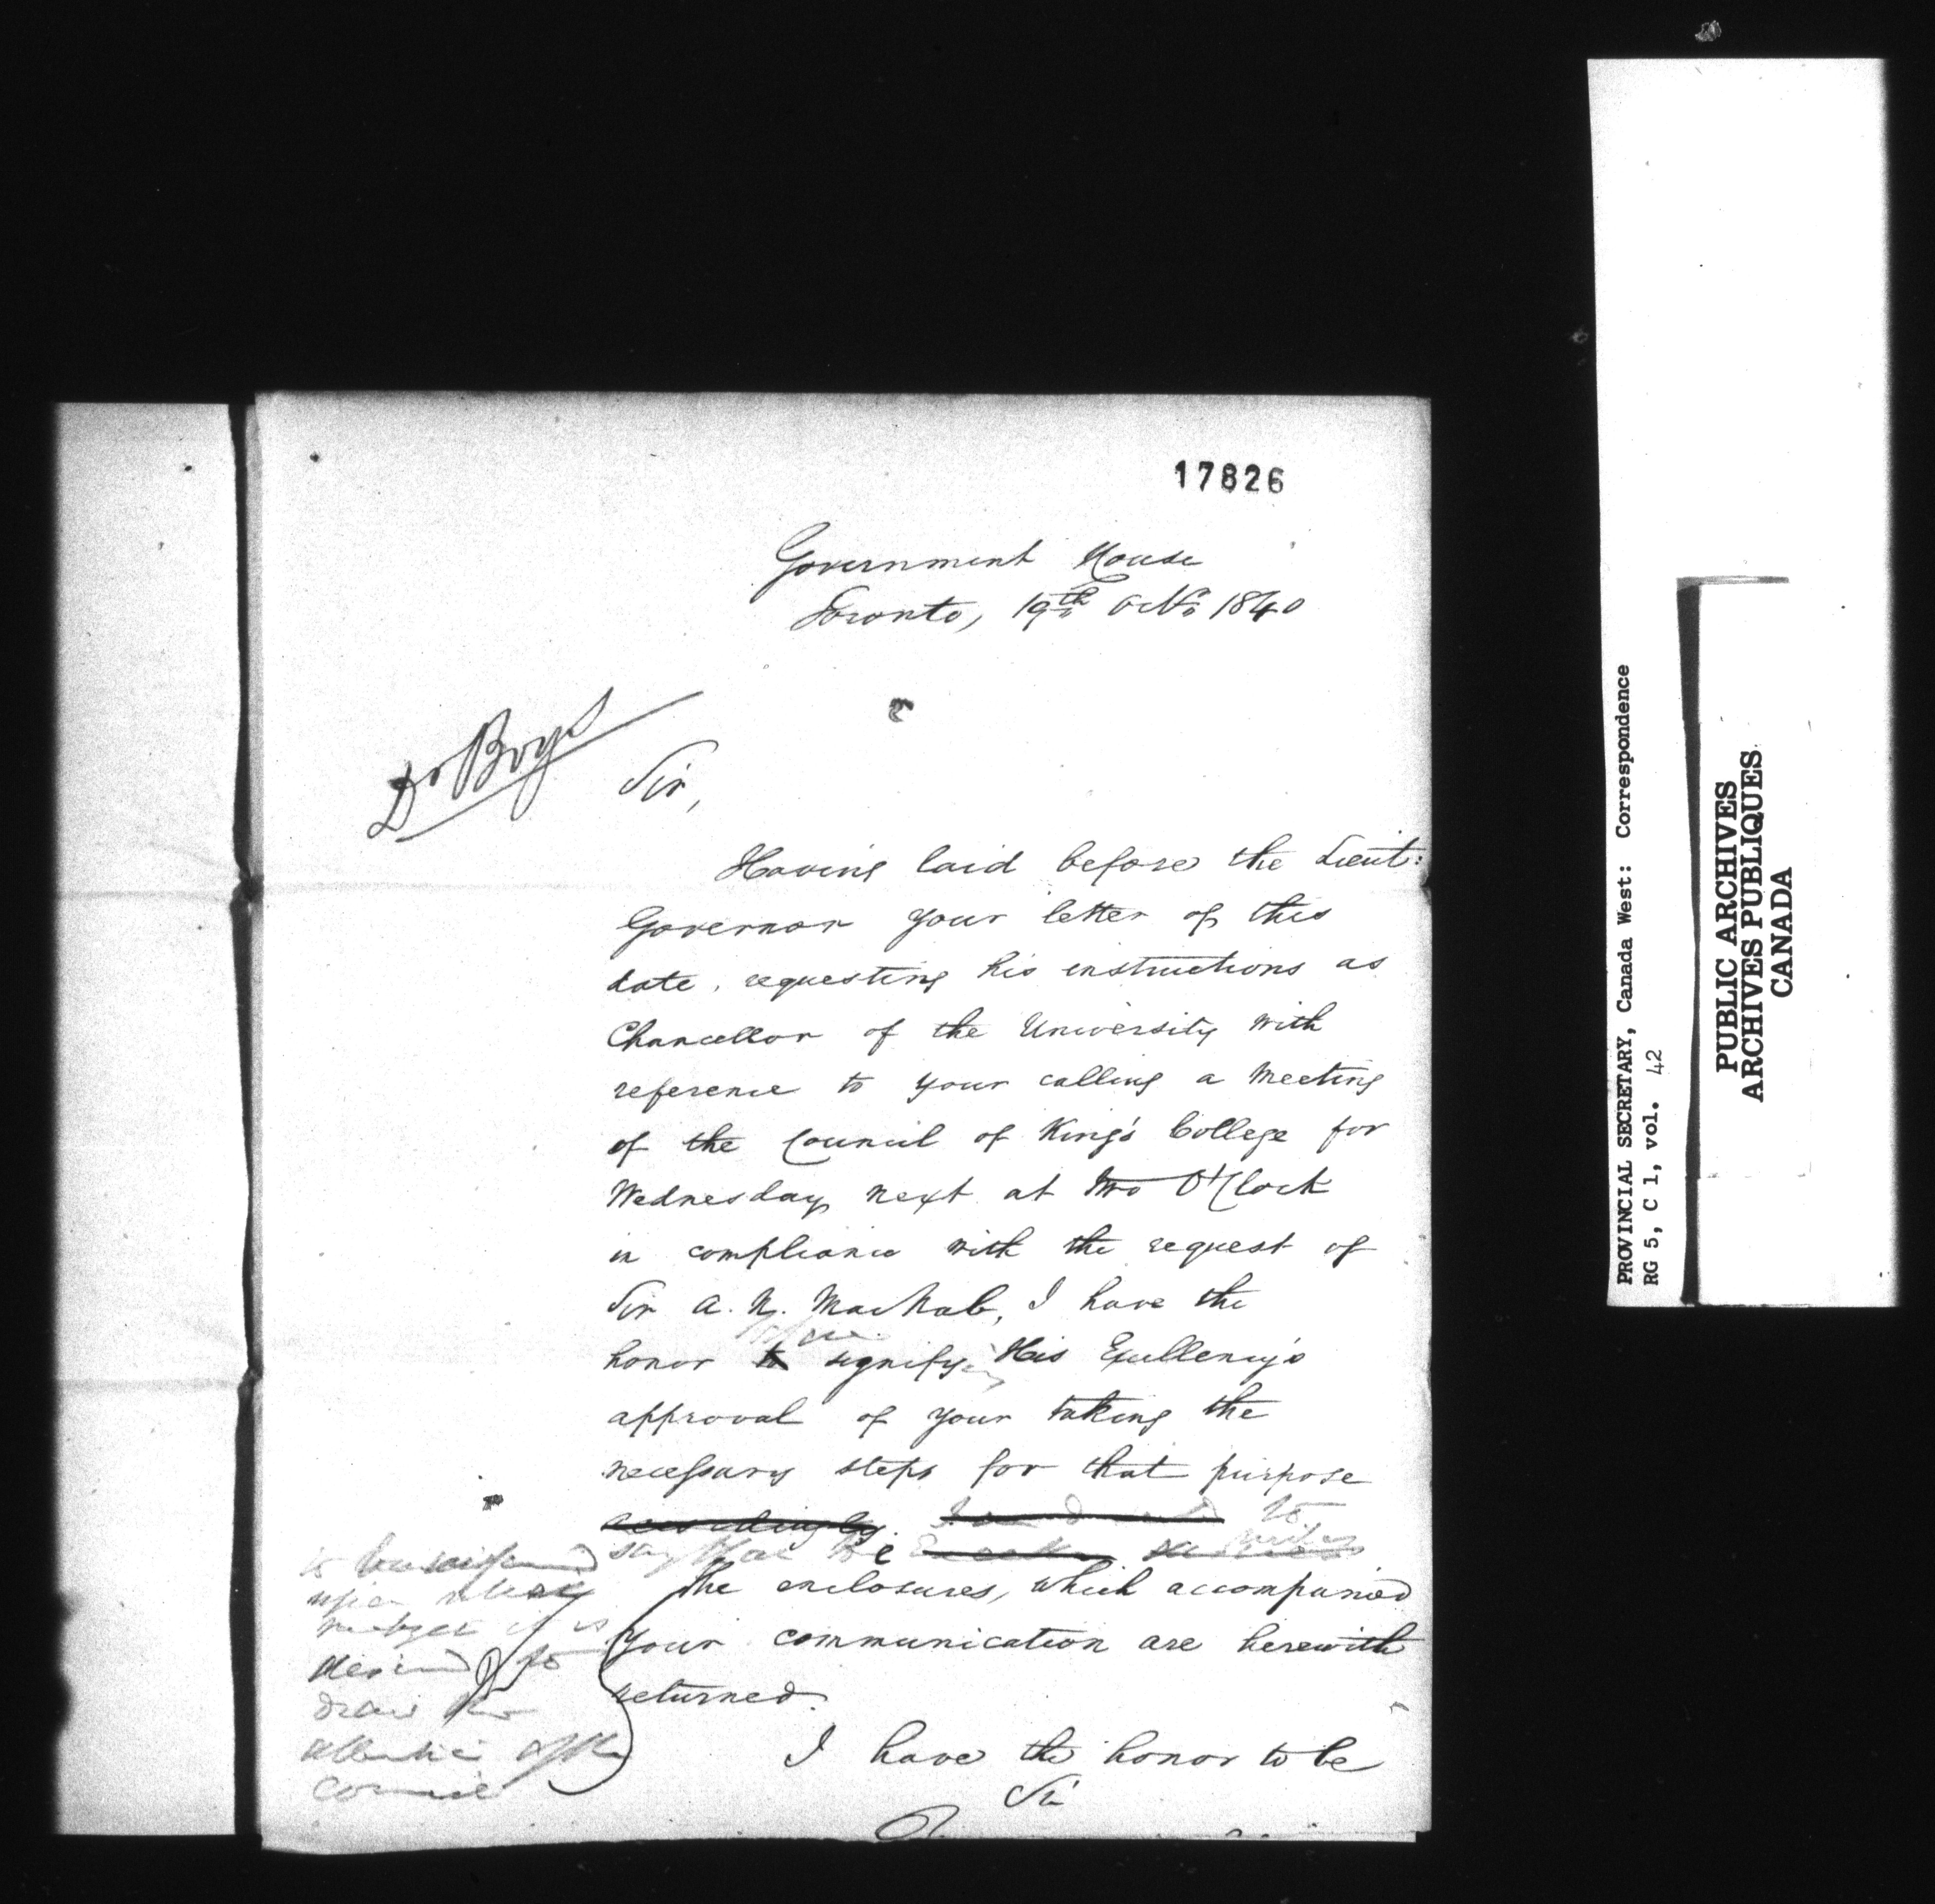 17826
Government House
Toronto, 19th Octr 1840
Dr Boys
Sir,
Having laid before the Lieut:
Governor your letter of this
date, requesting his instructions as
Chancellor of the University with
reference to your calling a Meeting
of the Council of King's College for
Wednesday next at two O'Clock
in compliance with the request of
Sir A. N. MacNab, I have the
honor to signify His Excellency's
approval of your taking the
necessary steps for that purpose
accordingly. to
say that he
The enclosures, which accompanied
your communication are herewith
returned.
upon
subject it is
desired to
draw the
attention of the
Council
I have the honor to be
Sir
PROVINCIAL SECRETARY, Canada West: Correspondence
RG 5, C 1, vol. 42
PUBLIC ARCHIVES
ARCHIVES PUBLIQUES
CANADA